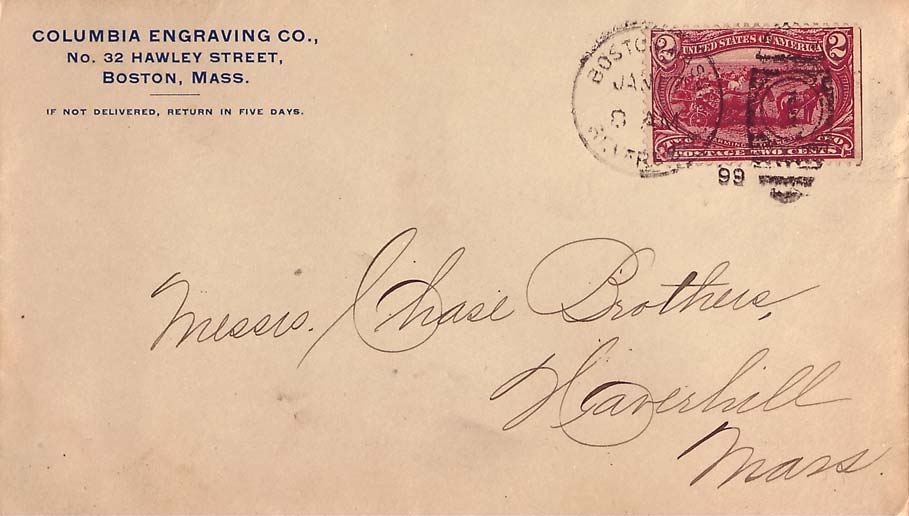 COLUMBIA ENGRAVING CO.,
No. 32 HAWLEY STREET,
BOSTON, MASS.
IF NOT DELIVERED, RETURN IN FIVE DAYS.
BOSTON
JAN
8 AM
99
2 UNITED STATES OF AMERICA 2
POSTAGE TWO CENTS
Messrs. Chase Brothers,
Haverhill
Mass.